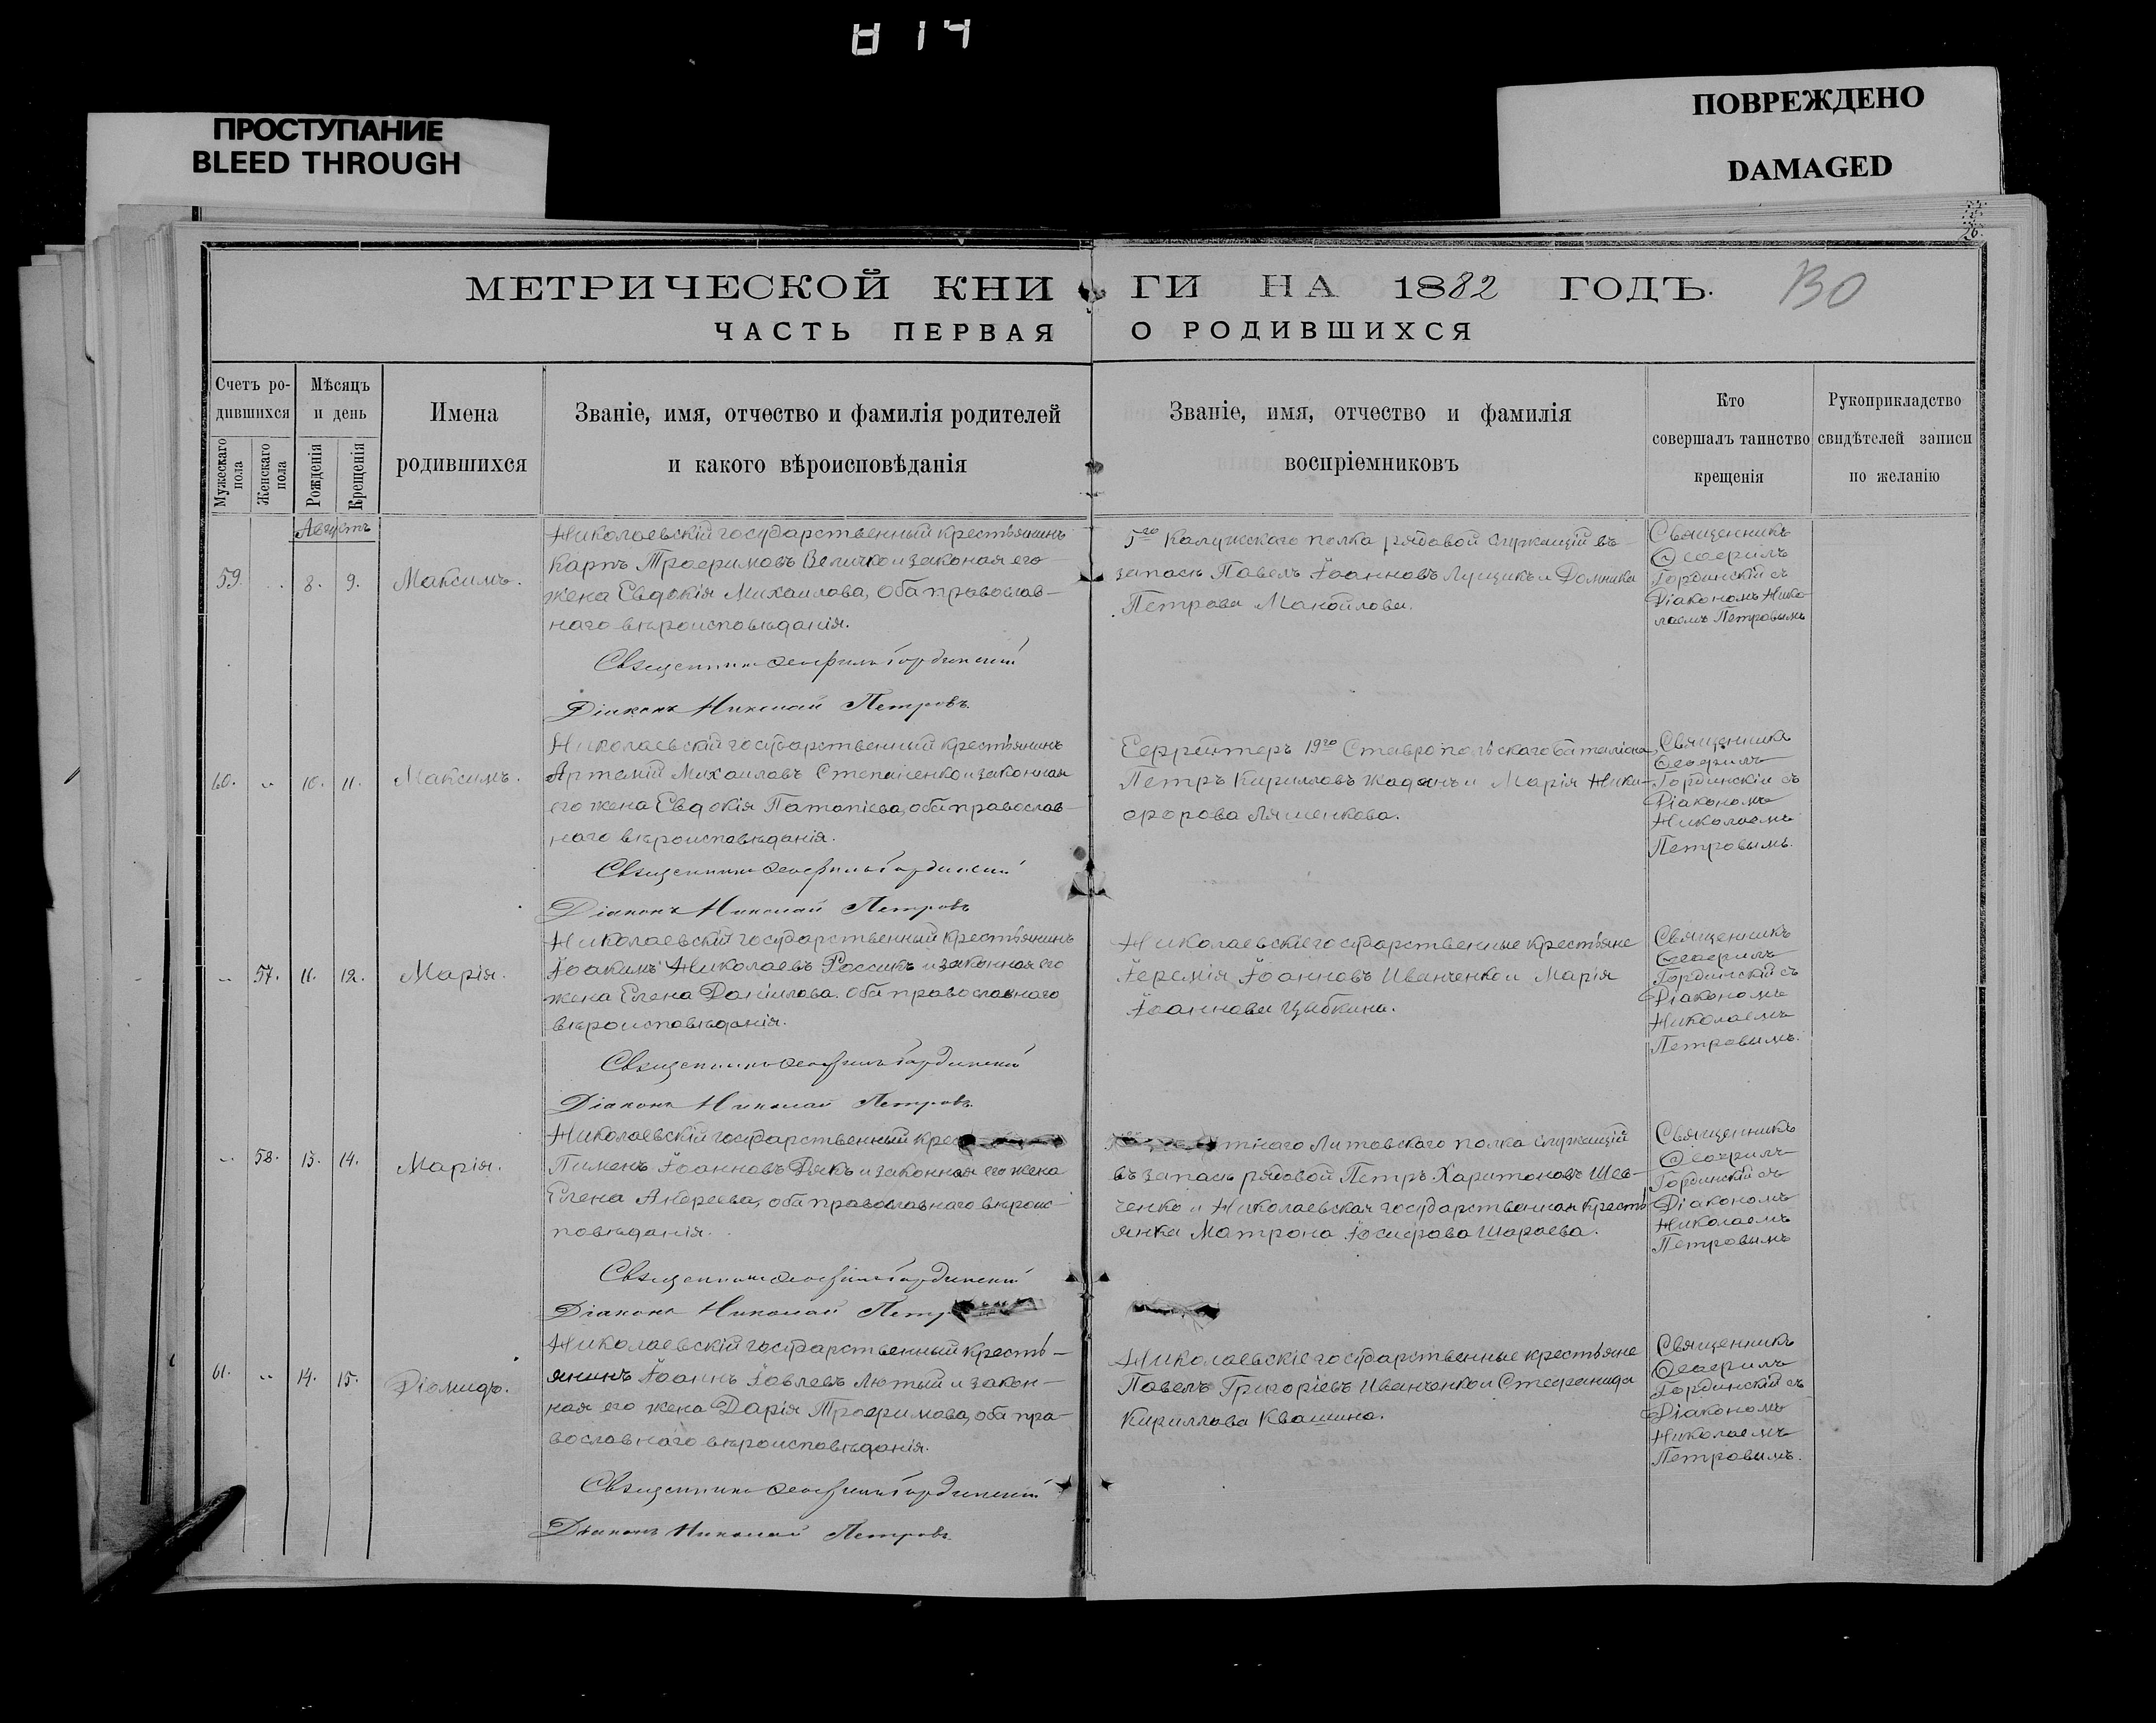 814
ПРОСТУПАНИЕ
BLEED THROUGH
ПОВРЕЖДЕНО
DAMAGED
МЕТРИЧЕСКОЙ КНИ
ГИ НА 1882 ГОДЪ.
130
ЧАСТЬ ПЕРВАЯ
О РОДИВШИХСЯ
Счетъ ро-
дившихся
Мужескаго пола
Женскаго пола
Мѣсяцъ
и день
Рожденія
Крещенія
Имена
родившихся
Званіе, имя, отчество и фамилія родителей
и какого вѣроисповѣданія
Званіе, имя, отчество и фамилія
воспріемниковъ
Кто
совершалъ таинство
крещенія
Рукоприкладство
свидѣтелей записи
по желанію
Августъ
59. 8. 9. Максимъ.
Николаевскій государственный крестьянинъ
Карпъ Трофимовъ Величко и законая его
жена Евдокія Михаилова, оба православ-
наго вѣроисповѣданія.
Священникъ Ѳеофилъ Гординскій
Діаконъ Николай Петровъ.
5го Калужскаго полка рядовой служащій въ
запасѣ Павелъ Іоанновъ Лущикъ и Домника
Петрова Манойлова.
Священникъ
Ѳеофилъ
Гординскій съ
Діакономъ Нико-
лаемъ Петровымъ
60. „ 10. 11. Максимъ.
Николаевскій государственный крестьянинъ
Артемій Михаиловъ Степаненко и законная
его жена Евдокія Потапіева, оба православ-
наго вѣроисповѣданія.
Священникъ Ѳеофилъ Гординскій
Діаконъ Николай Петровъ
Ефрейтеръ 19го Ставропольскаго баталіона
Петръ Кирилловъ Жаданъ и Марія Ники-
форова Ляшенкова.
Священникъ
Ѳеофилъ
Гординскій съ
Діакономъ
Николаемъ
Петровымъ.
„ 57. 11. 12. Марія.
Николаевскій государственный крестьянинъ
Іоакимъ Николаевъ Россикъ и законная его
жена Елена Даніилова. оба православнаго
вѣроисповѣданія.
Священникъ Ѳеофилъ Гординскій
Діаконъ Николай Петровъ.
Николаевскіе государственные крестьяне
Іеремія Іоанновъ Иванченко и Марія
Іоаннова Цыбкина.
Священникъ
Ѳеофилъ
Гординскій съ
Діакономъ
Николаемъ
Петровымъ.
„ 58. 13. 14. Марія.
Николаевскій государственный крес
Пименъ Іоанновъ Дякъ и законная его жена
Елена Андреева, оба православнаго вѣроис-
повѣданія.
Священникъ Ѳеофилъ Гординскій
Діаконъ Николай Петр
тнаго Литовскаго полка служащій
въ запасѣ рядовой Петръ Харитоновъ Шев-
ченко и Николаевская государственная кресть
янка Матрона Іосифова Шараева.
Священникъ
Ѳеофилъ
Гординскій съ
Діакономъ
Николаемъ
Петровымъ
61. „ 14. 15. Діомидъ.
Николаевскій государственный кресть-
янинъ Іоаннъ Іовлевъ Лютый и закон-
ная его жена Дарія Трофимова, оба пра-
вославнаго вѣроисповѣданія.
Священникъ Ѳеофилъ Гординскій
Діаконъ Николай Петровъ.
Николаевскіе государственные крестьяне
Павелъ Григоріевъ Иванченко и Стефанида
Кириллова Квашина.
Священникъ
Ѳеофилъ
Гординскій съ
Діакономъ
Николаемъ
Петровымъ.